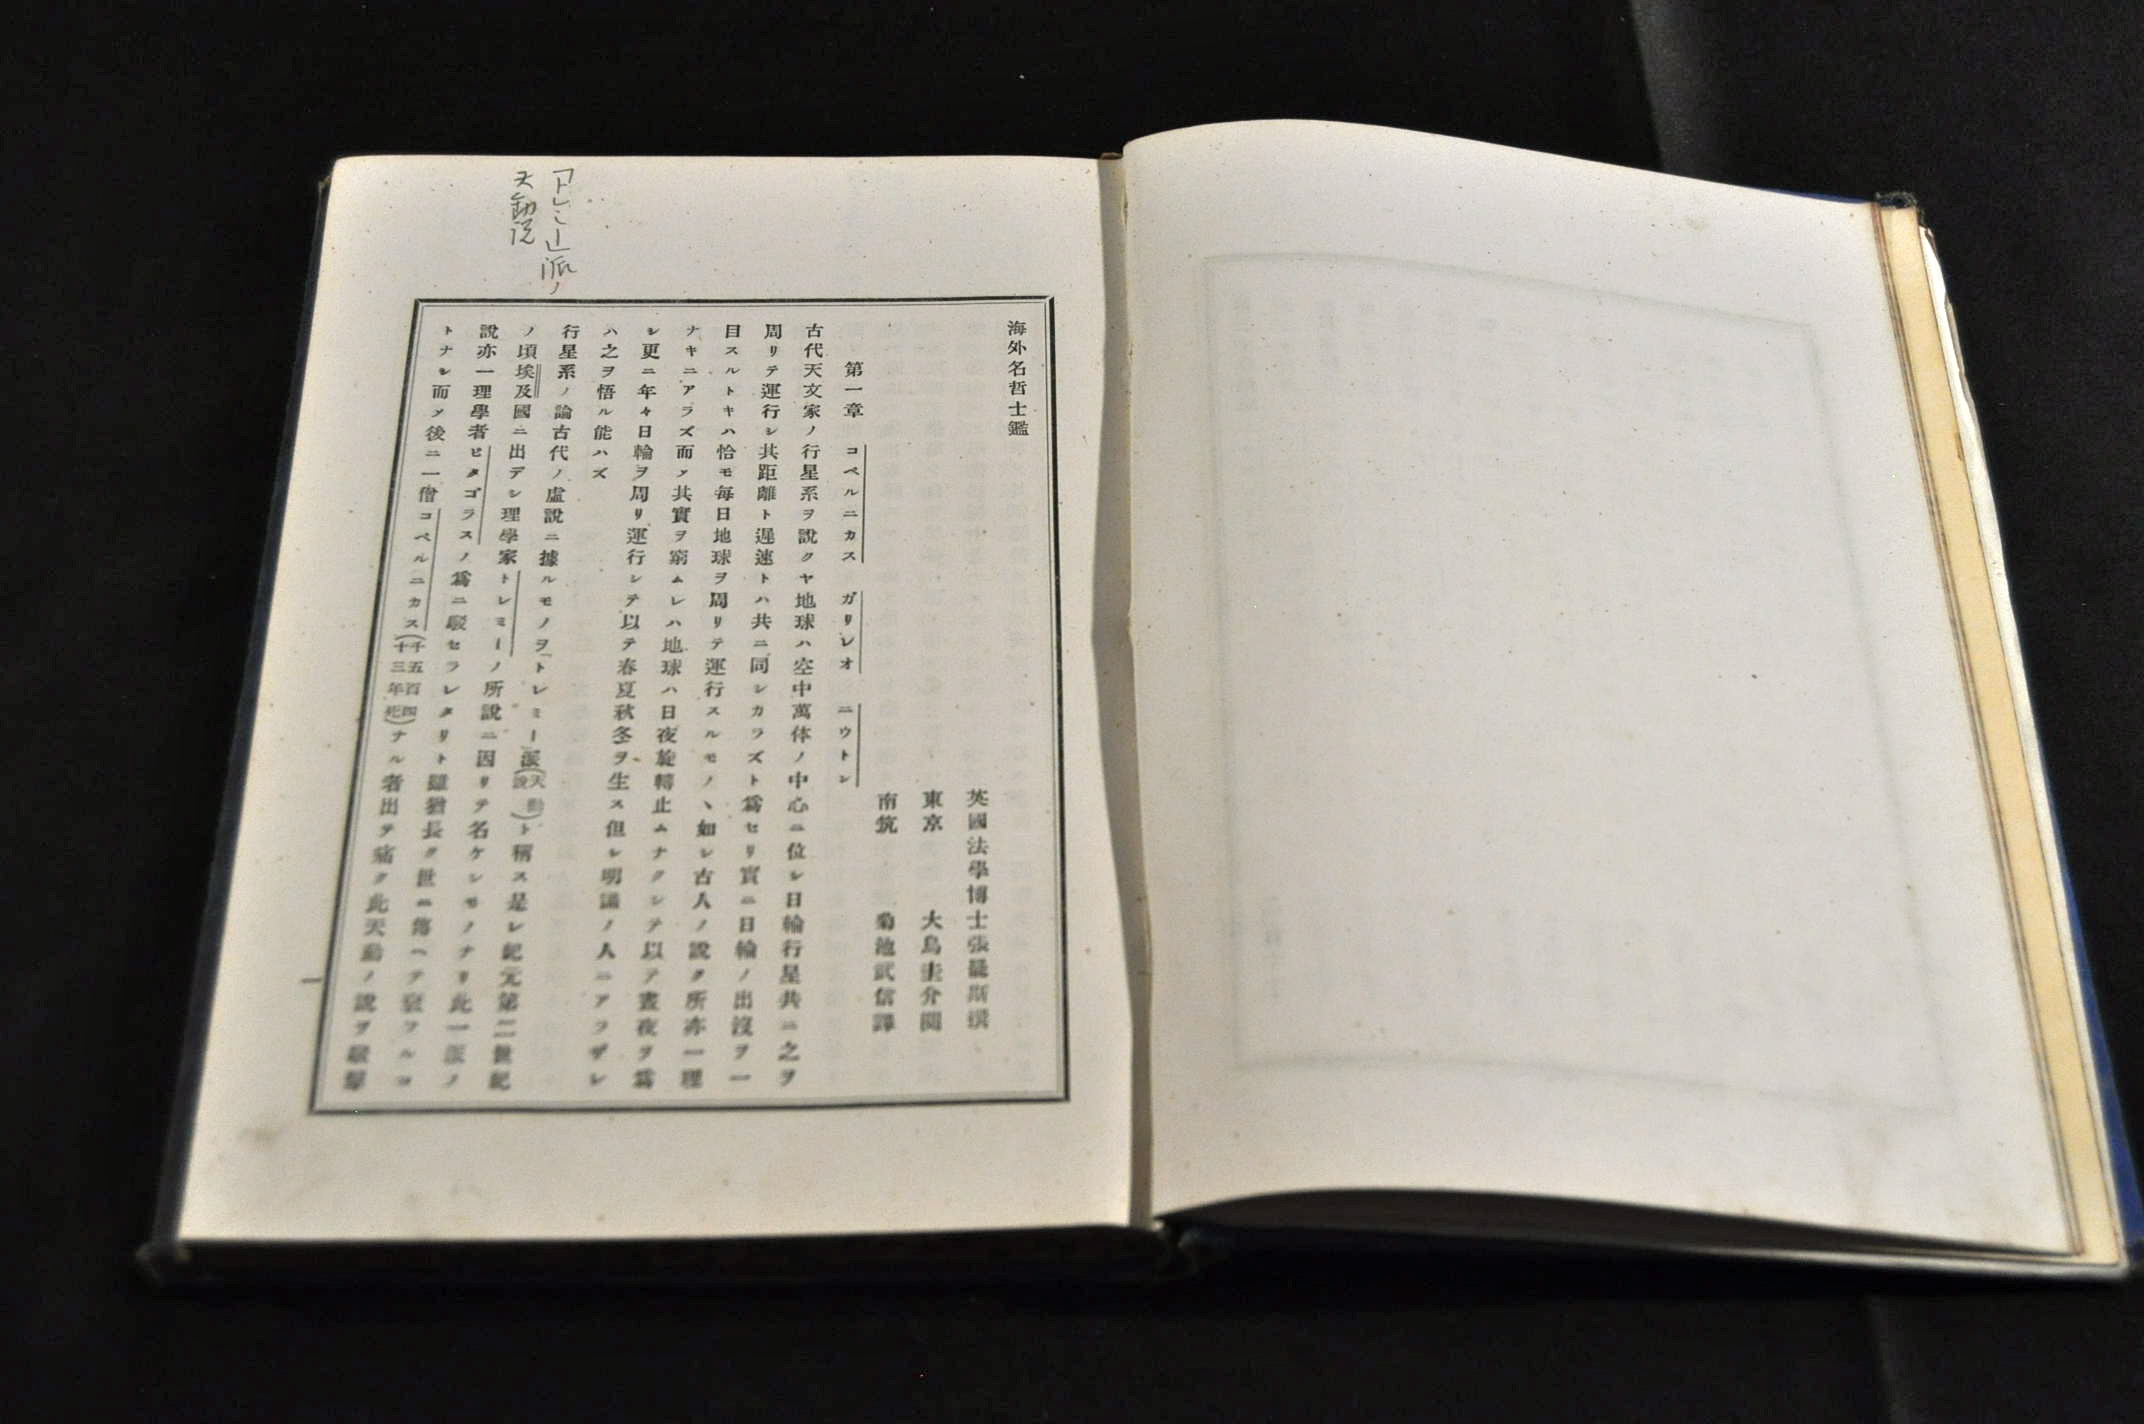 「トレミー」派ノ
天動説
海外名哲士鑑
英國法學博士張曼斯撰
東京 大鳥圭介閲
南筑 菊池武信譯
第一章 コペルニカス ガリレオ ニウトン
古代天文家ノ行星系ヲ說クヤ地球ハ空中萬体ノ中心ニ位シ日輪行星共ニ之ヲ
周リテ運行シ其距離ト遲速トハ共ニ同シカラズト爲セリ實ニ日輪ノ出沒ヲ一
目スルトキハ恰モ每日地球ヲ周リテ運行スルモノヽ如シ古人ノ說ク所亦一理
ナキニアラズ而ノ其實ヲ窮ムレハ地球ハ日夜旋轉止ムナクシテ以テ晝夜ヲ爲
シ更ニ年々日輪ヲ周リ運行シテ以テ春夏秋冬ヲ生ス但シ明識ノ人ニアラザレ
ハ之ヲ悟ル能ハズ
行星系ノ論古代ノ虛說ニ據ルモノヲ「トレミー」派(天動說)ト稱ス是レ紀元第二世紀
ノ頃埃及國ニ出デシ理學家トレミーノ所說ニ因リテ名ケシモノナリ此一派ノ
說亦一理學者ピタゴラスノ爲ニ駁セラレタリト雖猶長ク世ニ傳ヘテ衰フルコ
トナシ而ノ後ニ一僧コペルニカス(千五百四十三年死)ナル者出テ痛ク此天動ノ說ヲ駁擊